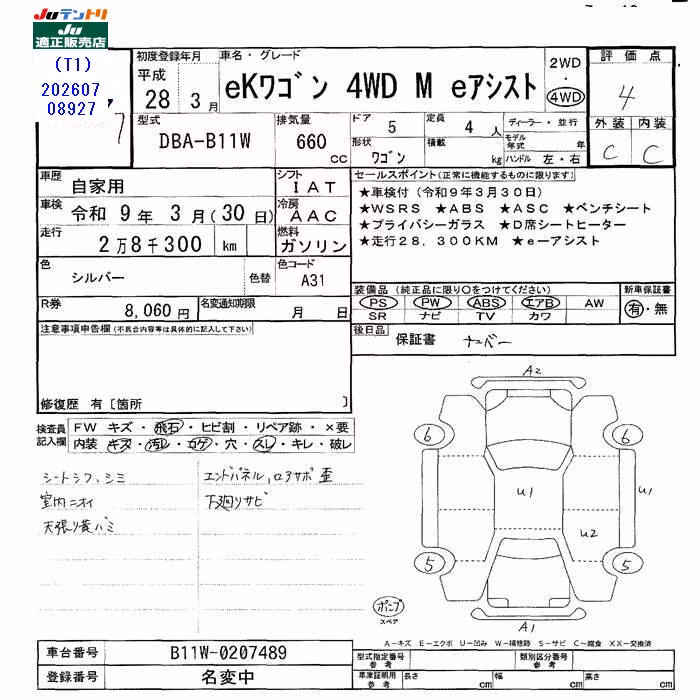 JUテントリ
JU
適正販売店
(T1)
202607
08927
初度登録年月
平成
28 3 月
車名・グレード
eKワゴン 4WD M eアシスト
2WD
・
4WD
評価点
4
外装 内装
C C
型式
DBA-B11W
排気量
660
cc
ドア
5
定員
4 人
形状
ワゴン
積載
kg
ディーラー・並行
モデル年式 年
ハンドル 左・右
車歴
自家用
車検
令和 9 年 3 月(30 日)
走行
2万8千300 km
色
シルバー
色替
シフト
IAT
冷房
AAC
燃料
ガソリン
色コード
A31
セールスポイント(正常に機能するものに限ります)
★車検付(令和9年3月30日)
★WSRS ★ABS ★ASC ★ベンチシート
★プライバシーガラス ★D席シートヒーター
★走行28,300KM ★e-アシスト
R券
8,060円
名変通知期限
月 日
装備品(純正品に限り○をつけてください)
PS PW ABS エアB AW
SR ナビ TV カワ
新車保証書
有・無
後日品
保証書 ナンバー
注意事項申告欄(不具合内容等は具体的に記入して下さい)
修復歴 有〔箇所 〕
検査員
記入欄
FW キズ・飛石・ヒビ割・リペア跡・×要
内装 キズ・汚レ・コゲ・穴・スレ・キレ・破レ
シートシワ、シミ
室内ニオイ
天張り黄バミ
エンドパネル、ロアサポ歪
下廻りサビ
A2
6 6
U1 U1
U2
5 5
A1
ポンプ
スペア
A-キズ E-エクボ U-凹み W-補修跡 S-サビ C-腐食 XX-交換済
車台番号
B11W-0207489
登録番号
名変中
型式指定番号
参考
類別区分番号
参考
車庫証明用
参考
長さ cm
幅 cm
高さ cm